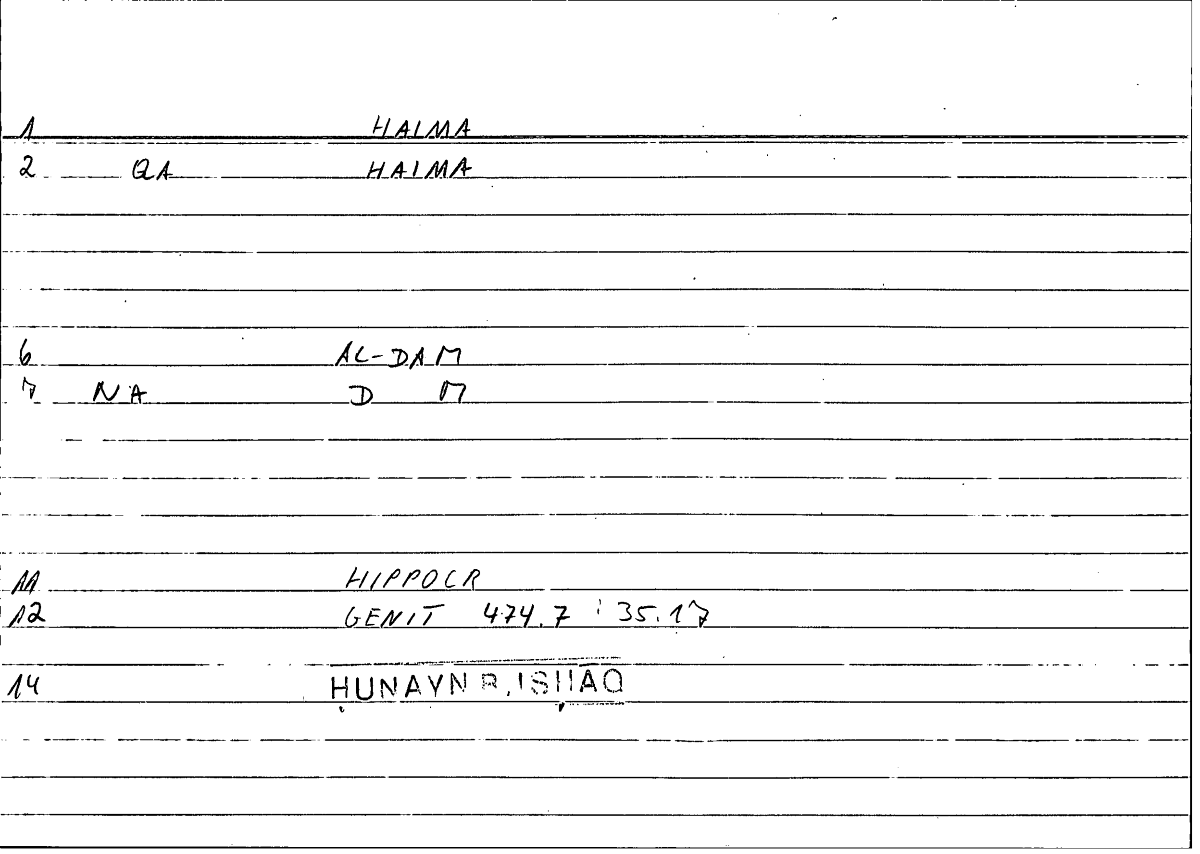 1 HAIMA
2 QA HAIMA
6 AL-DAM
7 NA D M
11 HIPPOCR
12 GENIT 474.7 : 35.17
14 ḤUNAYN B. ISḤĀQ